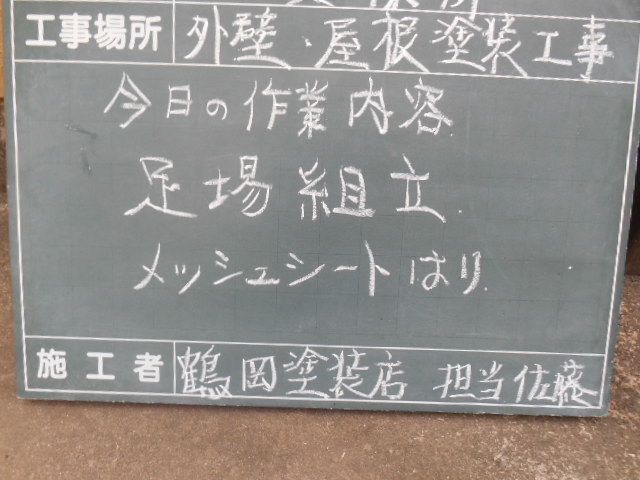 工事場所 外壁・屋根塗装工事
今日の作業内容
足場組立
メッシュシートはり
施工者 鶴岡塗装店 担当佐藤